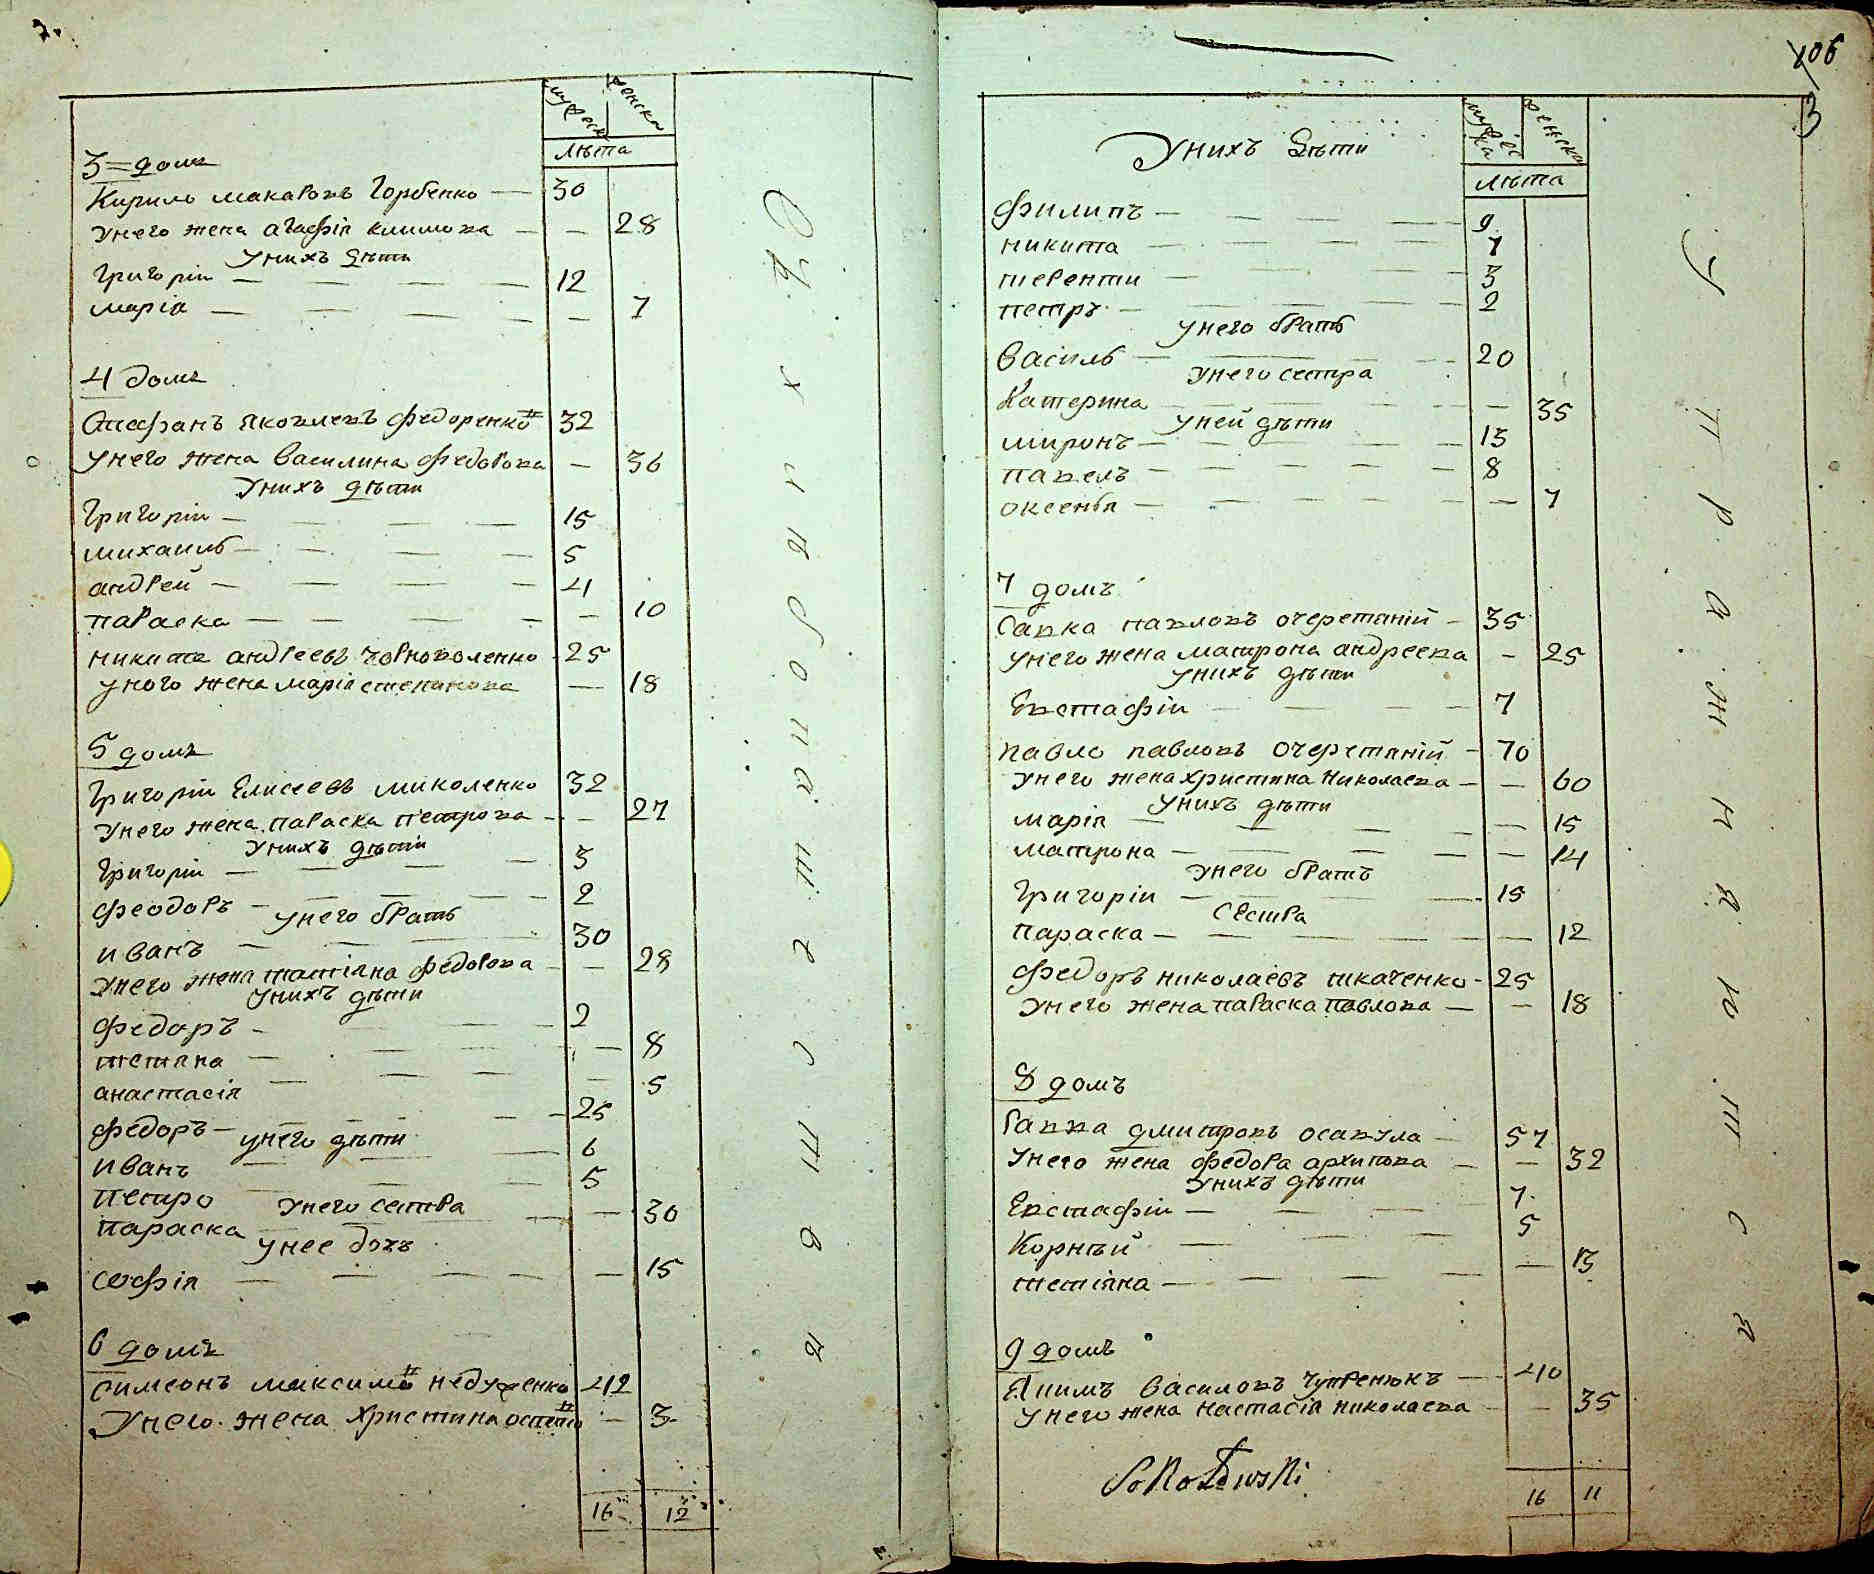 мужеск женска
лѣта
3=домъ
Кирило макаровъ Горбенко — 30
унего жена агафія климова — — 28
Унихъ дѣти
Григорій — 12
марія — — 7
4 домъ
Стефанъ яковлевъ федоренко 32
унего жена василина федорова — 36
Унихъ дѣти
Григорій — 15
михаилъ — 5
андрей — 4
параска — — 10
никита андреевъ чорноволенко 25
уного жена марія степанова — 18
5 домъ
Григорій Елисеевъ миколенко 32
Унего жена параска петрова — — 27
Унихъ дѣти
Григорій — 3
феодоръ — 2
унего братъ
иванъ — 30
Унего жена татіана федорова — — 28
Унихъ дѣти
федоръ — 2
тетяна — — 8
анастасія — — 5
федоръ — 25
унего дѣти
иванъ — 6
петро — 5
унего сестра
параска — — 30
унее дочъ
софія — — 15
6 домъ
симеонъ максимо недуженко 42
Унего жена христина — 3
16 12
Сухлѣбовашигоства
106
3
мужеска женска
лѣта
Унихъ дѣти
филипъ — 9
никита — 7
теренти — 3
петръ — 2
унего братъ
василь — 20
унего сестра
Катерина — — 35
уней дѣти
миронъ — 13
павелъ — 8
оксенія — — 7
7 домъ
Савка павловъ очеретяній — 35
унего жена матрона андреева — 25
унихъ дѣти
Евстафій — 7
павло павловъ очеретяній — 70
унего жена христина николаева — — 60
унихъ дѣти
марія — — 15
матрона — — 14
унего братъ
Григорій — 15
сестра
параска — — 12
федоръ николаевъ ткаченко — 25
унего жена параска павлова — — 18
8 домъ
Савва дмитровъ осавула — 57
унего жена федора архипова — — 32
унихъ дѣти
Евстафій — 7
Корнѣй — 5
тетіяна — — 13
9 домъ
Якимъ василовъ — 40
унего жена настасія николаева — — 35
16 11